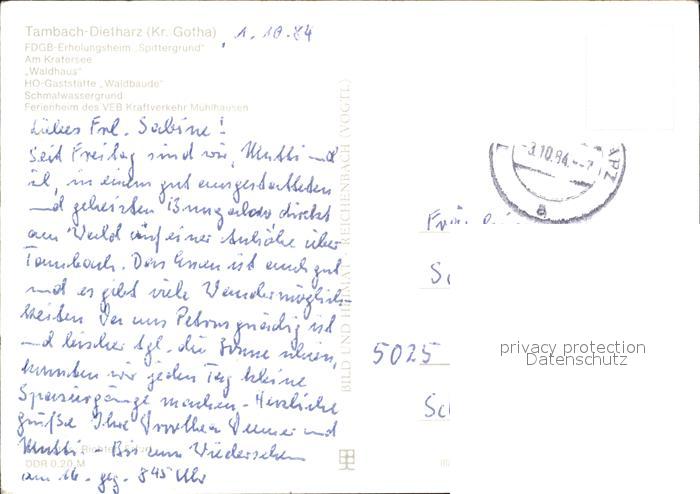 Tambach-Dietharz (Kr. Gotha)
1.10.84
FDGB-Erholungsheim „Spittergrund"
Am Kratersee
„Waldhaus"
HO-Gaststätte „Waldbaude"
Schmalwassergrund
Ferienheim des VEB Kraftverkehr Mühlhausen
Liebes Frl. Sabine!
Seit Freitag sind wir, Mutti und
ich, in einem gut ausgestatteten
und geheizten Bungalow direkt
am Wald auf einer Anhöhe über
Tambach. Das Essen ist auch gut
und es gibt viele Wandermöglich-
keiten. Da uns Petrus gnädig ist
und bisher tgl. die Sonne schien,
konnten wir jeden Tag kleine
Spaziergänge machen. - Herzliche
grüße Ihre Dorothea und
Mutti. - Bis zum Wiedersehen
am 16. geg. 845 Uhr
DDR 0,20 M
BILD UND HEIMAT REICHENBACH (VOGTL)
-3.10.84.-7
a
5025
privacy protection
Datenschutz